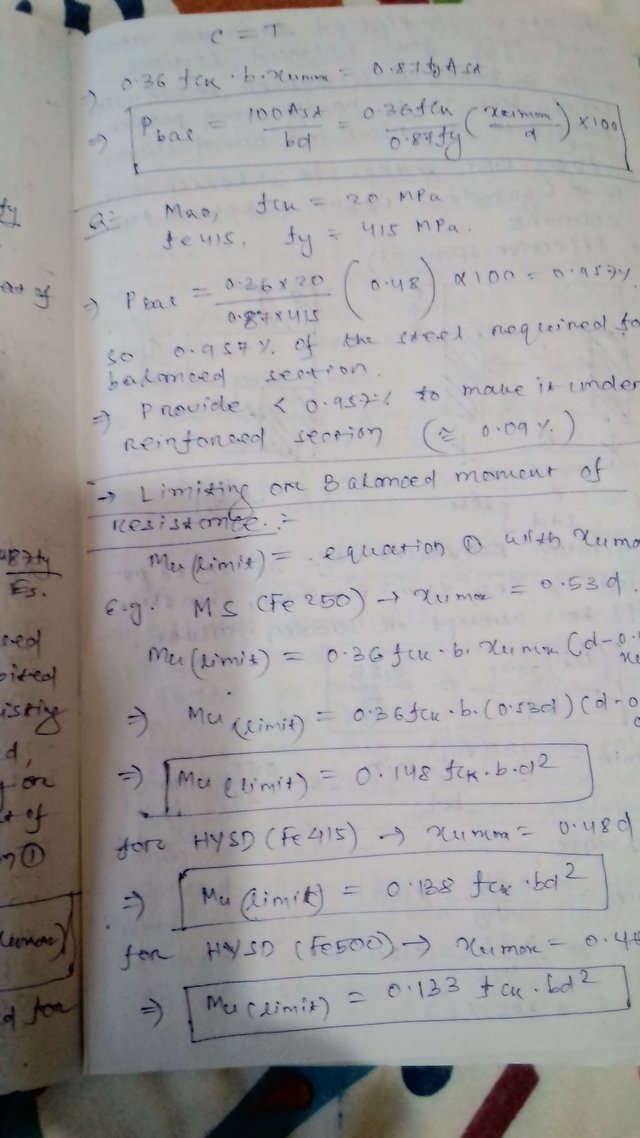 C = T.
⇒ 0.36 fck · b · xumax = 0.87 fy Ast
⇒ Pbal = 100 Ast / bd = 0.36 fck / 0.87 fy (xumax / d) × 100
Q:- M20, fck = 20 MPa
fe 415, fy = 415 MPa.
⇒ Pbal = 0.36 × 20 / 0.87 × 415 (0.48) × 100 = 0.957%
so 0.957% of the steel required fo
balanced section.
⇒ Provide < 0.957% to make it under
reinforced section (≅ 0.09%)
→ Limiting or Balanced moment of
resistance :-
Mu(limit) = equation ① with xuma
E.g. MS (Fe 250) → xumax = 0.53d.
Mu(limit) = 0.36 fck · b · xumax (d - 0.
xu
⇒ Mu(limit) = 0.36 fck · b · (0.53d) (d - 0
⇒ Mu(limit) = 0.148 fck · b · d²
for HYSD (Fe415) → xumax = 0.48d
⇒ Mu(limit) = 0.138 fck · bd²
for HYSD (Fe500) → xumax = 0.4
⇒ Mu(limit) = 0.133 fck · bd²
fy
at of
.87fy
Es.
isting
d,
or
t of
n ①
xumax)
d for